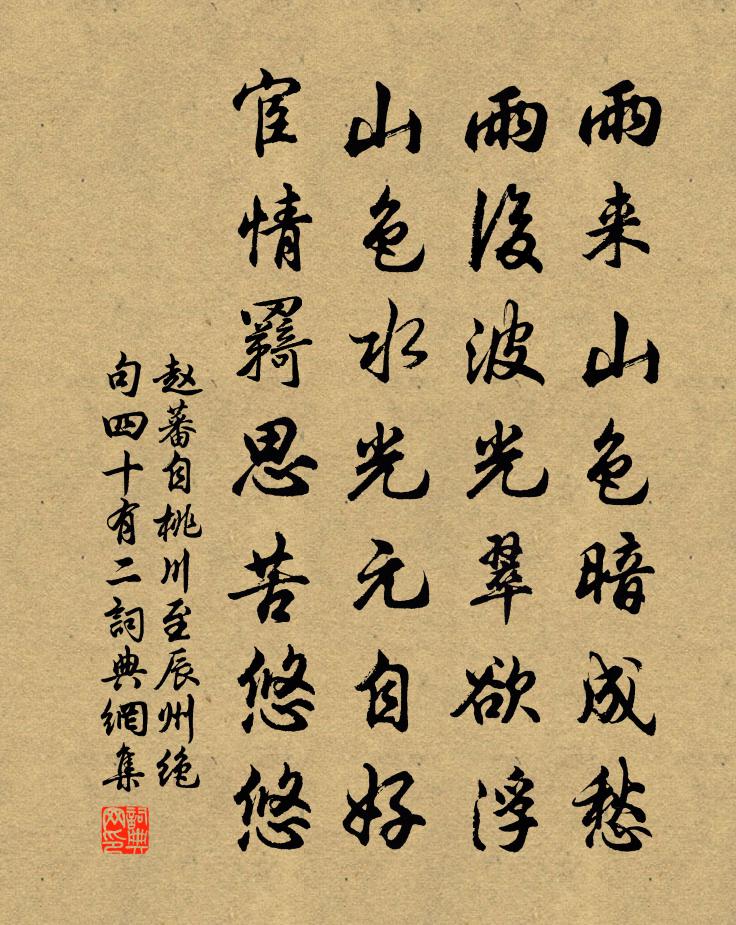 雨来山色暗成愁
雨後波光翠欲浮
山色水光元自好
宦情羇思苦悠悠
赵蕃自桃川至辰州绝
句四十有二詞典網集
詞典
网印